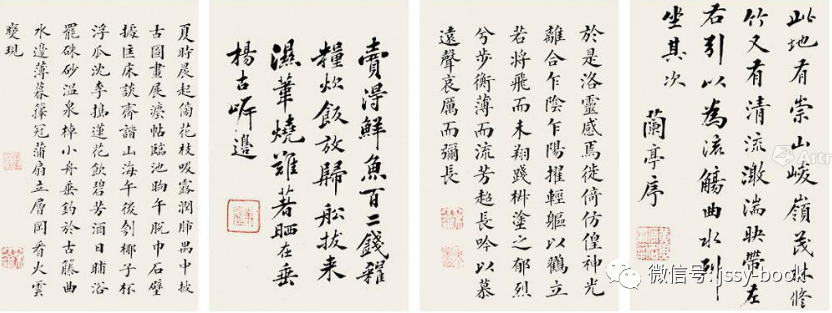 此地有崇山峻嶺茂林修
竹又有清流激湍映帶左
右引以為流觴曲水列
坐其次
蘭亭序
於是洛靈感焉徙倚仿偟神光
離合乍陰乍陽擢輕軀以鶴立
若將飛而未翔踐椒塗之郁烈
兮步衡薄而流芳超長吟以慕
遠聲哀厲而彌長
賣得鮮魚百二錢糴
糧炊飯放歸船拔來
濕葦燒難著晒在垂
楊古岸邊
夏時晨起傍花枝吸露潤肺禺中披
古圖畫展瘞帖臨池晌午脫巾石壁
據匡床談齊諧山海午後刳椰子杯
浮瓜沈李搗蓮花飲碧芳酒日晡浴
罷硃砂溫泉棹小舟垂釣於古藤曲
水邊薄暮籜冠蒲扇立層岡看火雲
變現
微信号:jssy-book